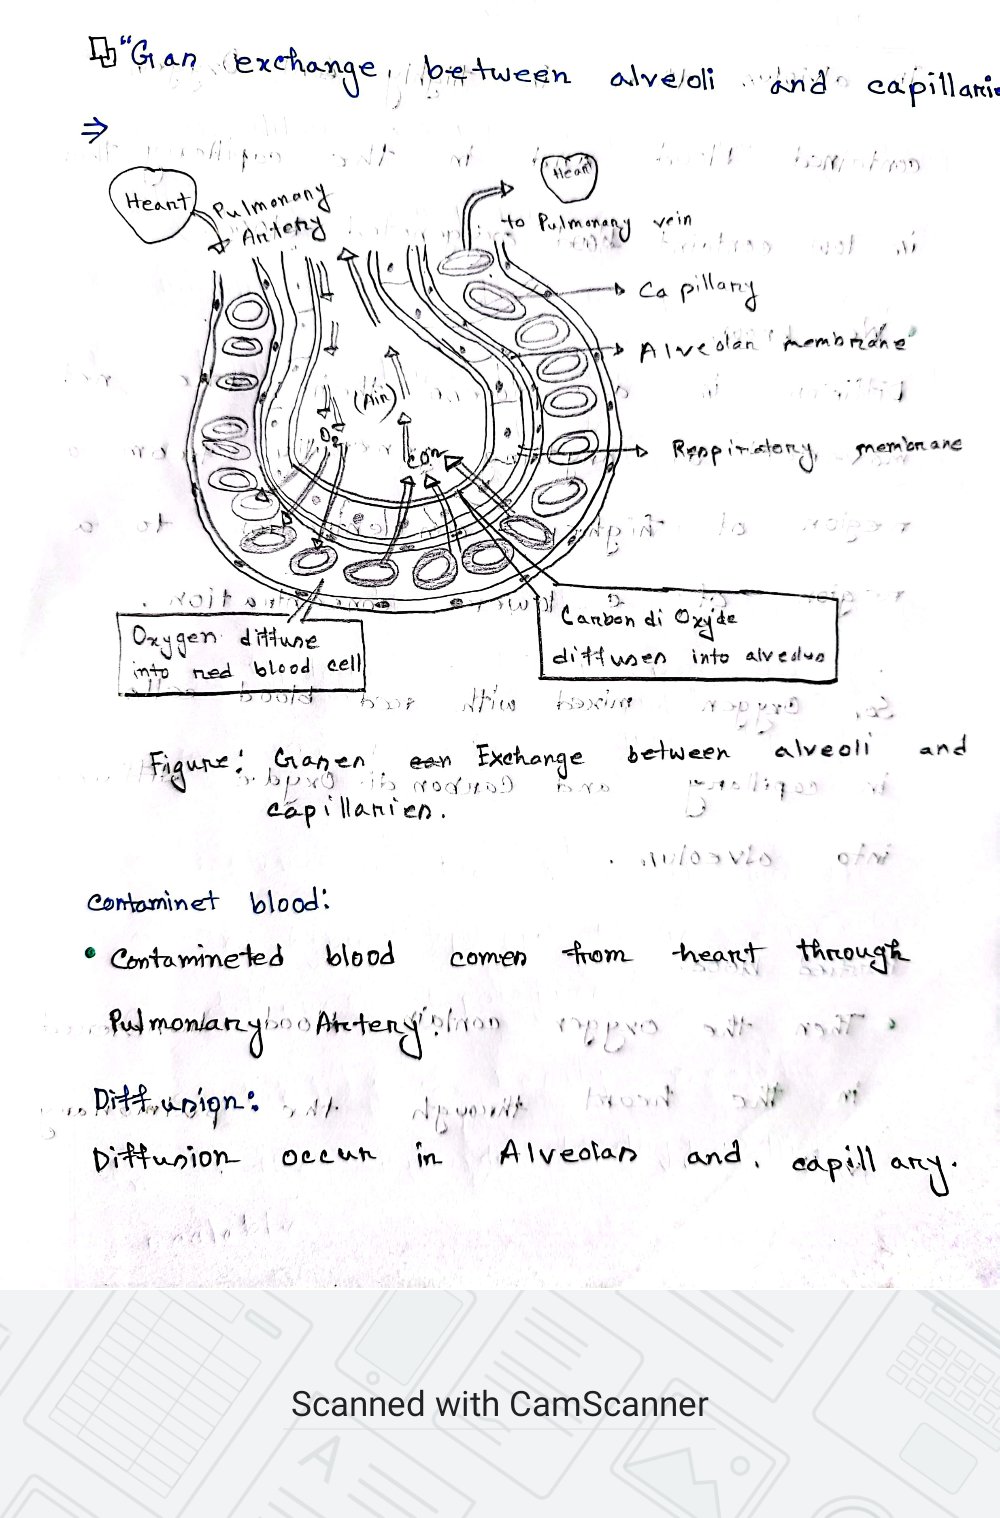 "Gas exchange between alveoli and capillarie
⇒
Heart
Pulmonary
Artery
Heart
to Pulmonary vein
Capillary
Alveolar membrane
Respiratory membrane
(Air)
O₂
Oxygen diffuse
into red blood cell
Carbon di Oxyde
diffuses into alveolus
Figure: Gases Exchange between alveoli and
capillaries.
Contaminet blood:
• Contamineted blood comes from heart through
Pulmonary Artery.
Diffusign:
Diffusion occur in Alveolar and capillary.
Scanned with CamScanner